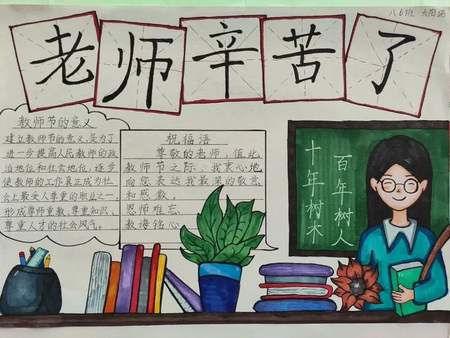 八6班
老师辛苦了
教师节的意义
建立教师节的意义,是为了
进一步提高人民教师的政
治地位和社会地位,逐步
使教师的工作真正成为社
会上最受人尊重的职业之一,
形成尊师重教、尊重知识、
尊重人才的社会风气。
祝福语
尊敬的老师,值此
教师节之际,我衷心地
向您表达我最深的敬意
和感激
恩师难忘
教诲铭心
十年树木
百年树人